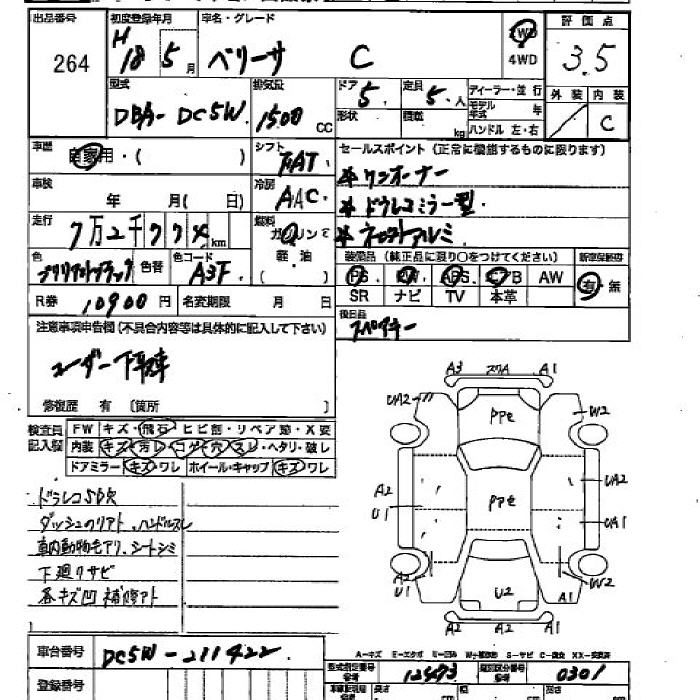 出品番号 初度登録年月 車名・グレード 2WD 評価点
264 H18 5月 ベリーサ C 4WD 3.5
型式 排気量 ドア 定員 ディーラー・並行 外装 内装
DBA-DC5W 1500 CC 5 5人 モデル年式 年 C
形状 積載 kg ハンドル 左・右
車歴 自家用・( ) シフト FAT セールスポイント (正常に機能するものに限ります)
* ワンオーナー
車検 年 月( 日) 冷房 AAC
* ドラレコミラー型
走行 7万2千774km 燃料 ガソリン
* ネットアルミ
色 色替 色コード A3F (軽油) 装備品 (純正品に限り○をつけてください) 新車保証書
PS PW ABS エアB AW 有・無
R券 10900円 名変期限 月 日 SR ナビ TV 本革
後日品
スペアキー
注意事項申告欄(不具合内容等は具体的に記入して下さい)
ユーザー下取車
修復歴 有 〔箇所 〕
検査員記入欄 FW キズ・飛石・ヒビ割・リペア跡・X要
内装 キズ・汚レ・コゲ・穴・スレ・ヘタリ・破レ
ドアミラー キズ・ワレ ホイール・キャップ キズ・ワレ
ドラレコSD欠
ダッシュのリアト、ハンドルスレ
車内動物毛アリ、シートシミ
下廻りサビ
各キズ凹 補修アト
A3 スリA A1
UA2 PPセ W2
A2 U1 PPセ UA2
UA1
A2 U1 U2 W2
A1
A2 A2 A1
車台番号 DC5W-211422
A-キズ E-エクボ U-凹み W-補修跡 S-サビ C-腐食 XX-交換済
型式指定番号 12473 類別区分番号 0301
登録番号 長さ 幅 高さ